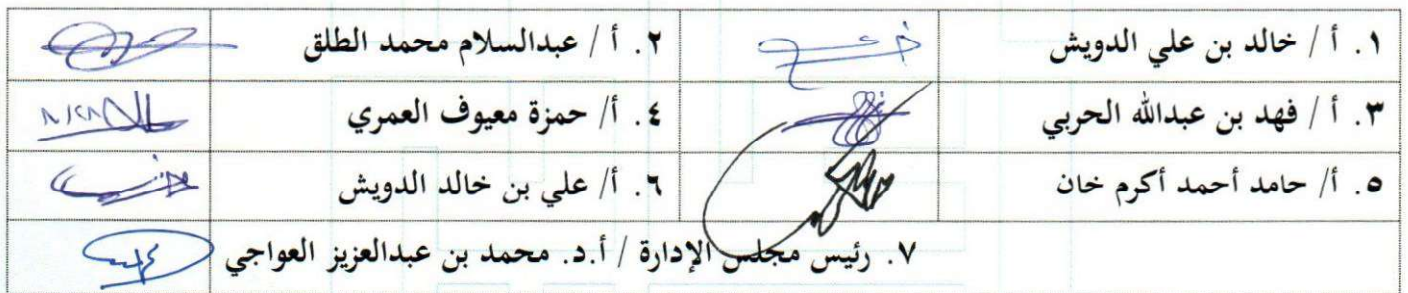 ١. أ / خالد بن علي الدويش ٢. أ / عبدالسلام محمد الطلق
٣. أ / فهد بن عبدالله الحربي ٤. أ/ حمزة معيوف العمري
٥. أ/ حامد أحمد أكرم خان ٦. أ/ علي بن خالد الدويش
٧. رئيس مجلس الإدارة / أ.د. محمد بن عبدالعزيز العواجي